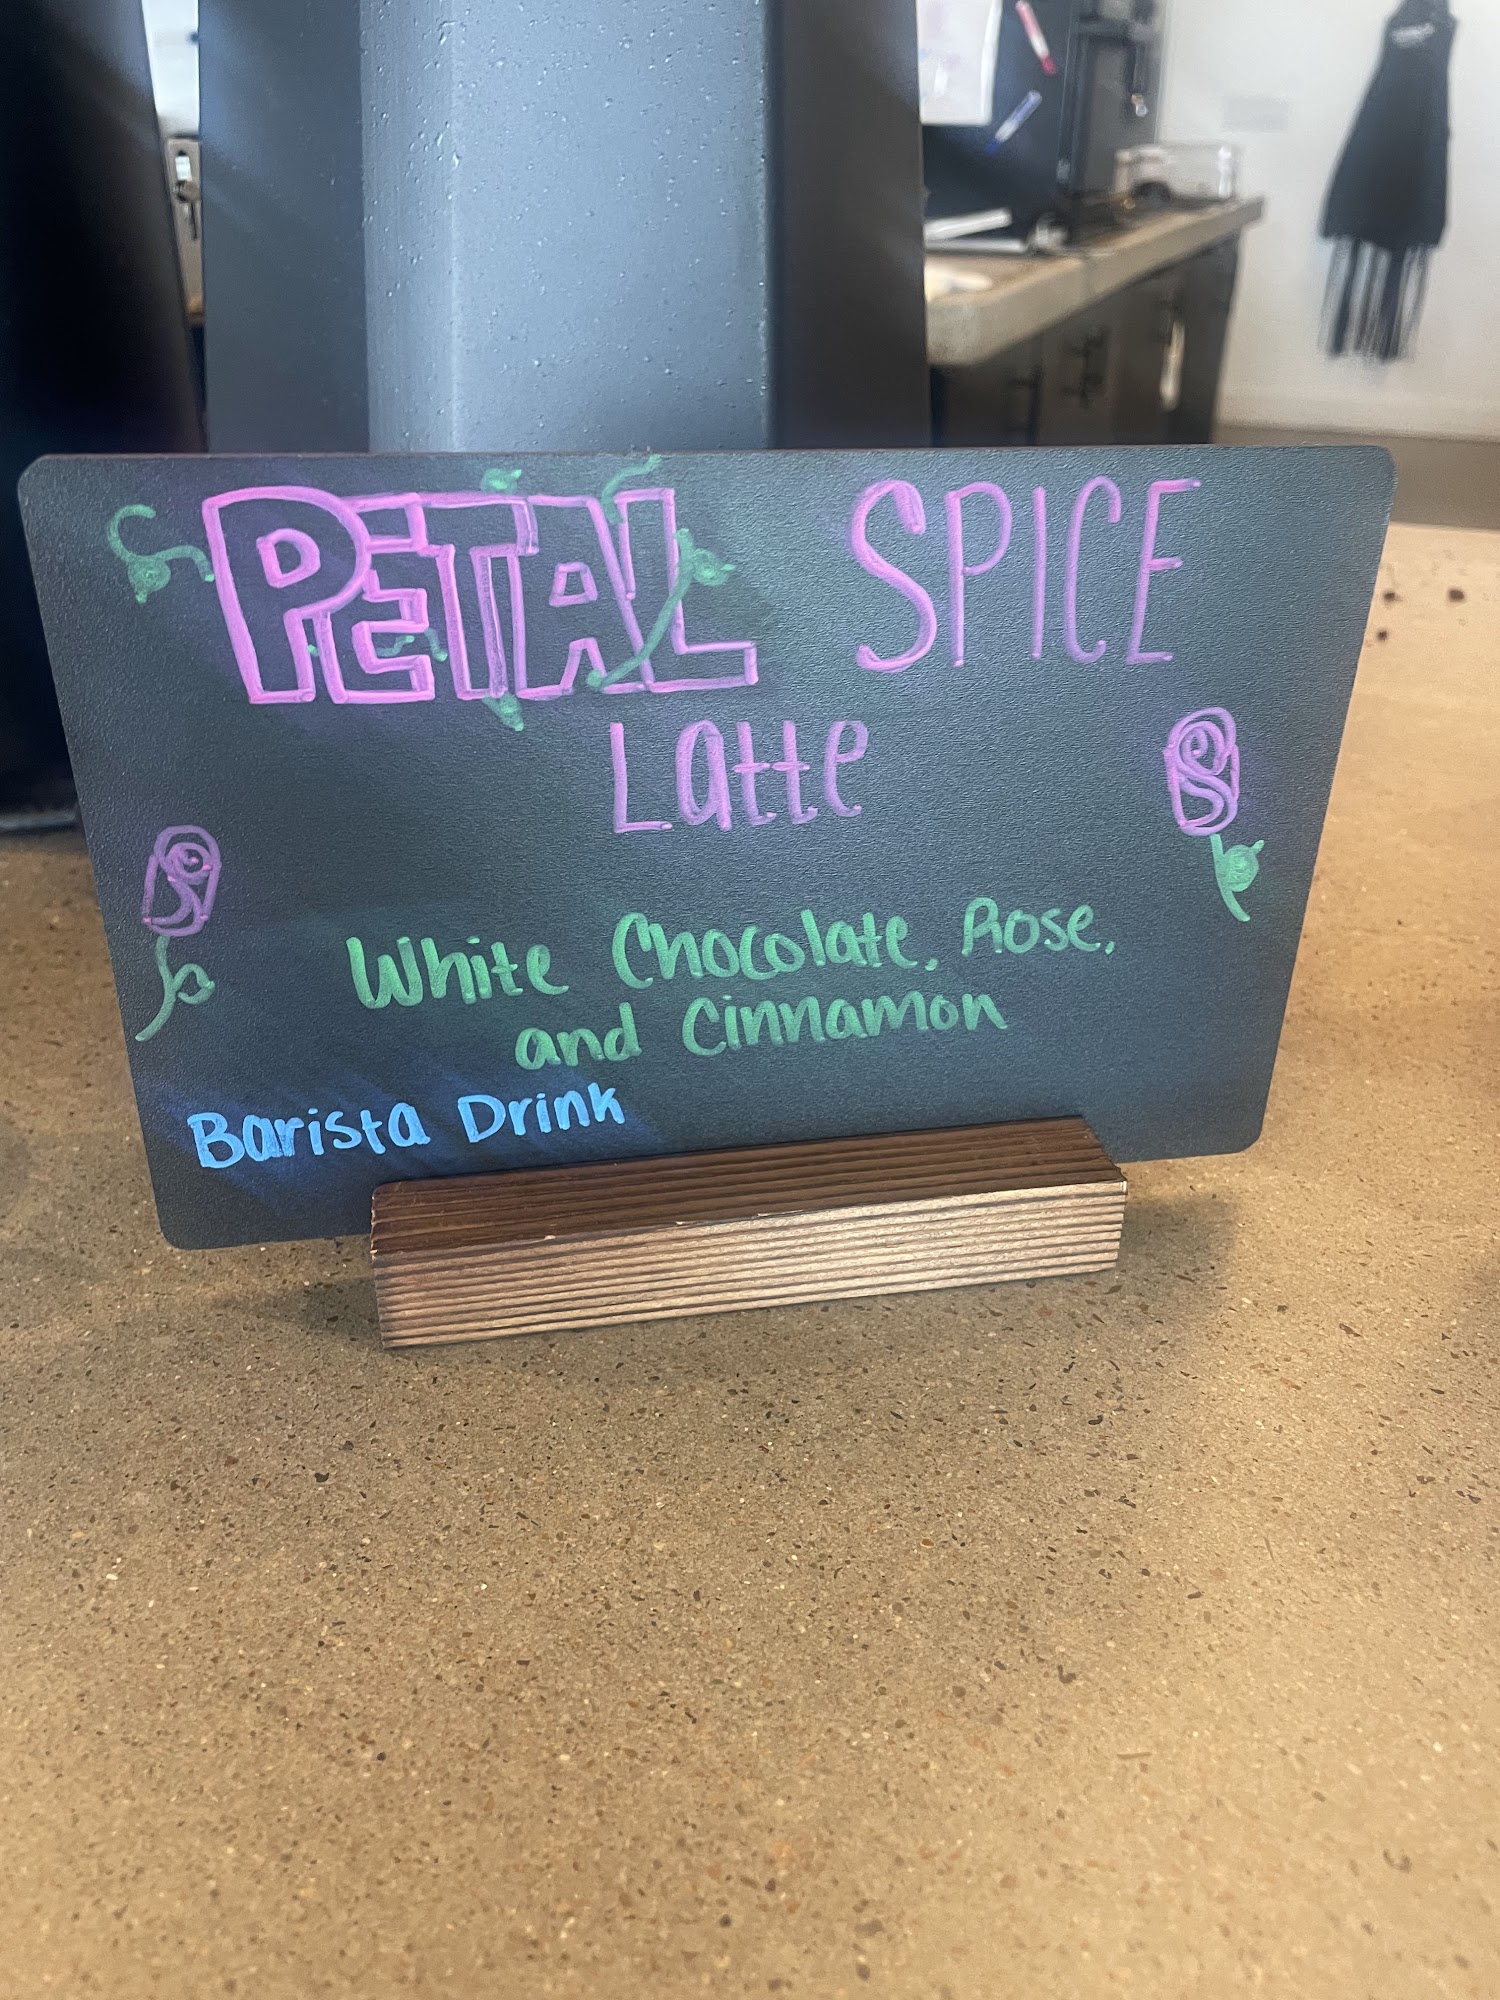 PETAL SPICE
Latte
White Chocolate, Rose,
and Cinnamon
Barista Drink